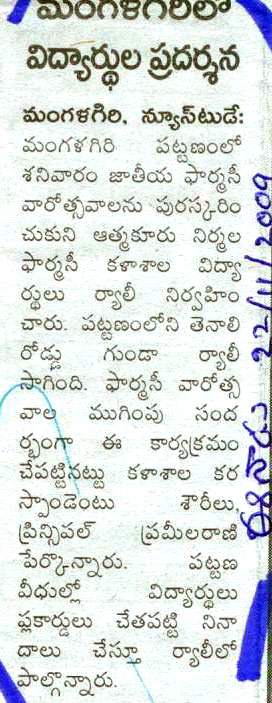 మంగళగిరిలో
విద్యార్థుల ప్రదర్శన
మంగళగిరి, న్యూస్‌టుడే:
మంగళగిరి పట్టణంలో
శనివారం జాతీయ ఫార్మసీ
వారోత్సవాలను పురస్కరిం
చుకుని ఆత్మకూరు నిర్మల
ఫార్మసీ కళాశాల విద్యా
ర్థులు ర్యాలీ నిర్వహిం
చారు. పట్టణంలోని తెనాలి
రోడ్డు గుండా ర్యాలీ
సాగింది. ఫార్మసీ వారోత్స
వాల ముగింపు సంద
ర్భంగా ఈ కార్యక్రమం
చేపట్టినట్టు కళాశాల కర
స్పాండెంటు శౌరీలు,
ప్రిన్సిపల్ ప్రమీలరాణి
పేర్కొన్నారు. పట్టణ
వీధుల్లో విద్యార్థులు
ప్లకార్డులు చేతపట్టి నినా
దాలు చేస్తూ ర్యాలీలో
పాల్గొన్నారు.
ఈనాడు 22/11/2009